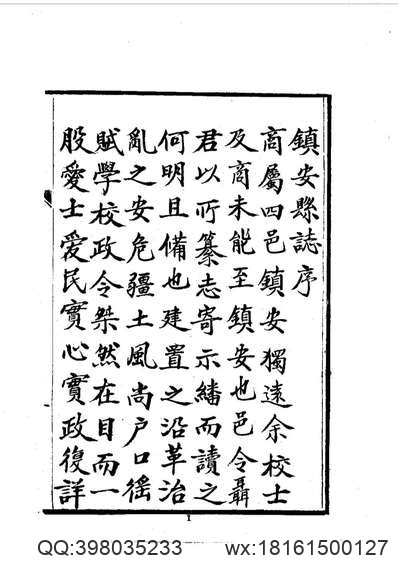 鎮安縣誌序
商屬四邑鎮安獨遠余校士
及商未能至鎮安也邑令聶
君以所纂志寄示繙而讀之
何明且備也建置之沿革治
亂之安危疆土風尚户口徭
賦學校政令桀然在目而一
股愛士爱民實心實政復詳
1
QQ:398035233 wx:18161500127